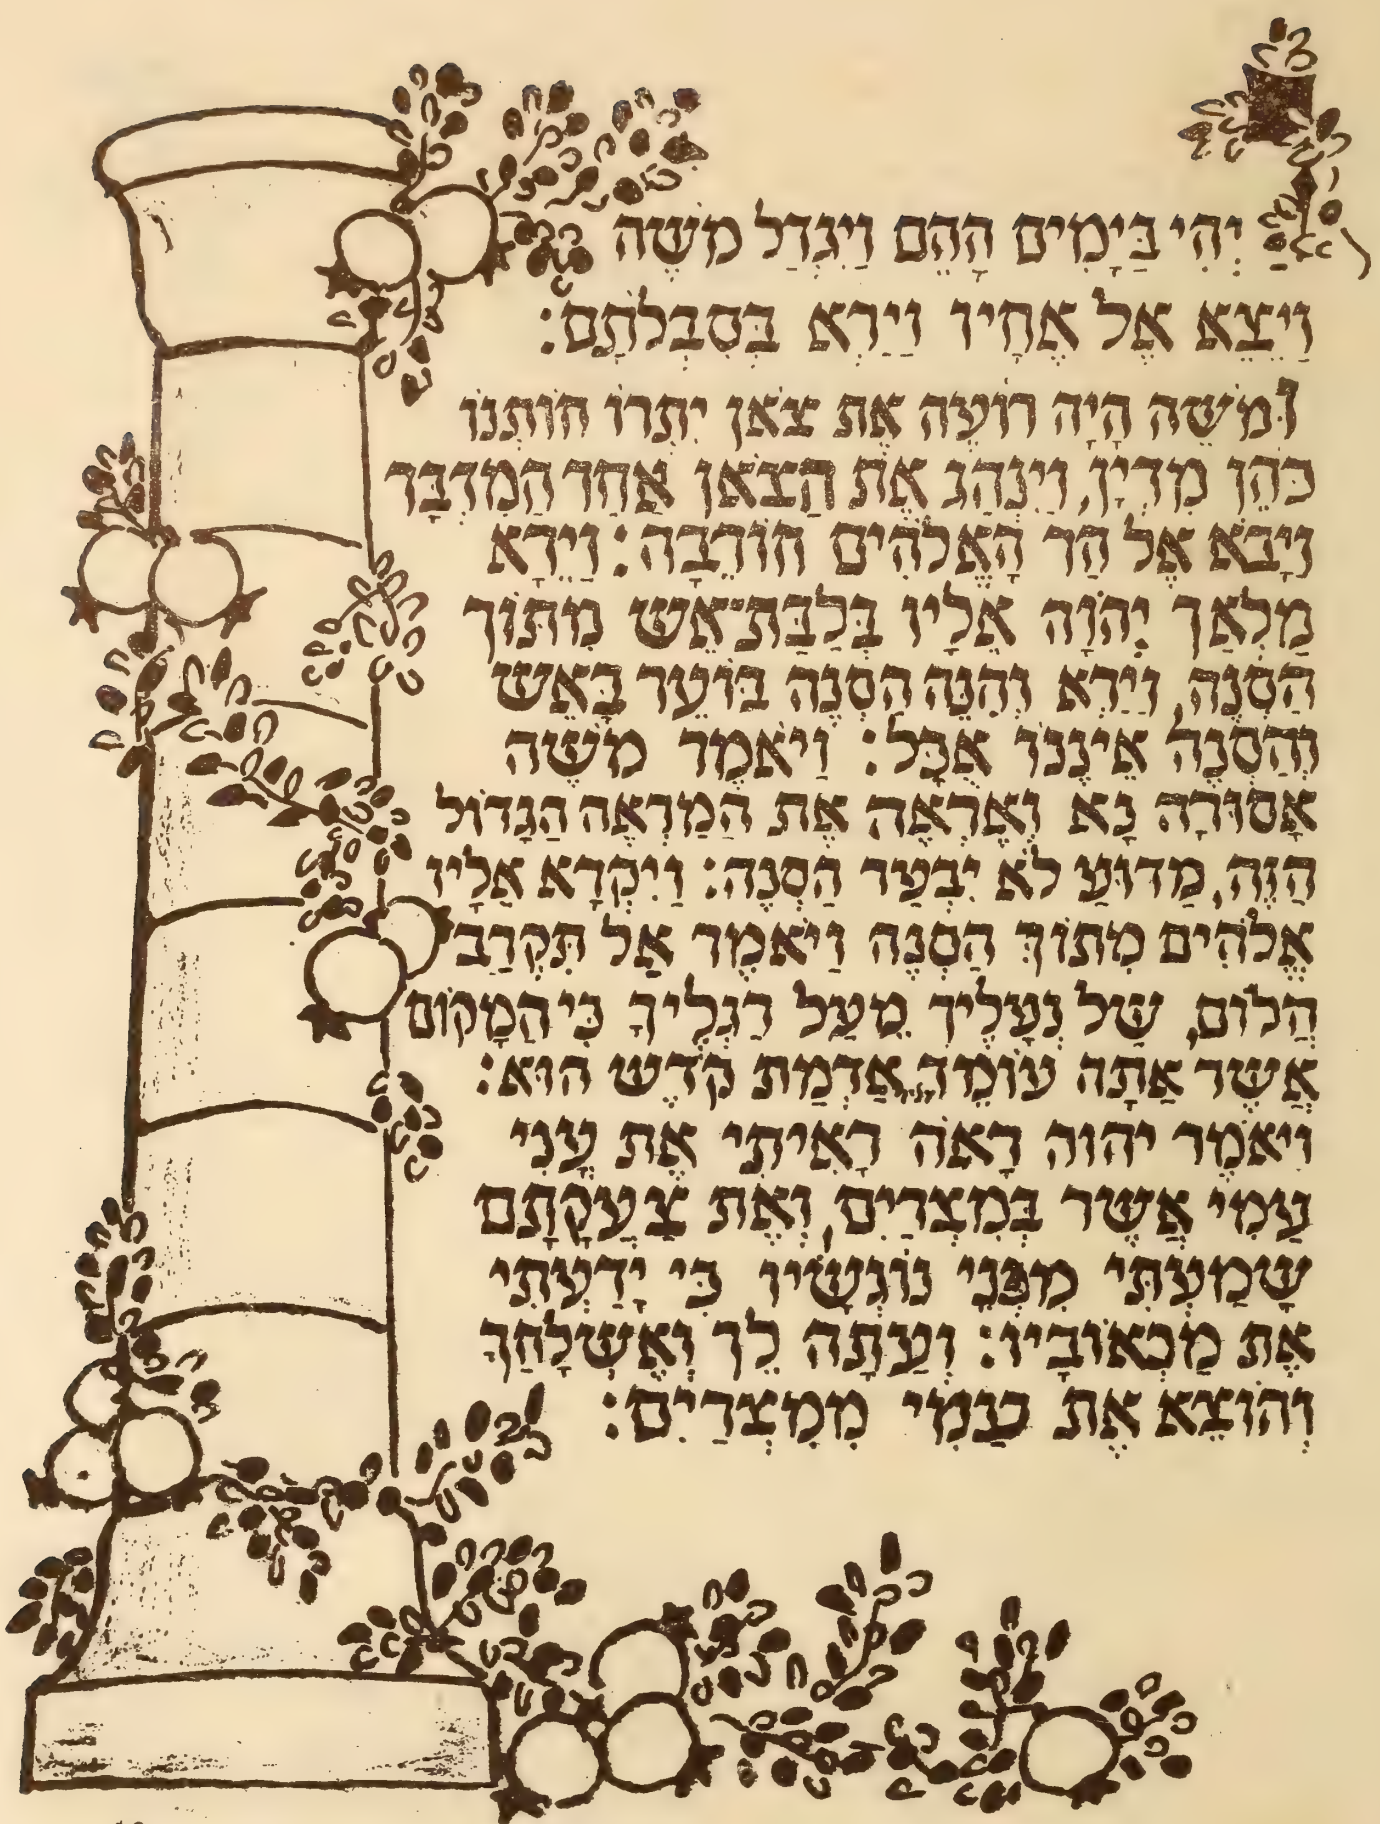 וַיְהִי בַּיָמִים הָהֵם וַיִגְדַל מֹשֶׁה
וַיֵצֵא אֶל אֶחָיו וַיַרְא בְּסִבְלֹתָם:
וּמֹשֶׁה הָיָה רוֹעֶה אֶת צֹאן יִתְרוֹ חוֹתְנוֹ
כֹּהֵן מִדְיָן, וַיִנְהַג אֶת הַצֹאן אַחַר הַמִדְבָּר
וַיָבֹא אֶל הַר הָאֱלֹהִים חוֹרֵבָה: וַיֵרָא
מַלְאַך יְהֹוָה אֵלָיו בְּלַבַּת־אֵש מִתּוֹך
הַסְנֶה, וַיַרְא וְהִנֵה הַסְנֶה בּוֹעֵר בָּאֵש
וְהַסְנֶה אֵינֶנוּ אֻכָּל: וַיֹאמֶר מֹשֶׁה
אָסוּרָה נָא וְאֶרְאֶה אֶת הַמַרְאֶה הַגָדוֹל
הַזֶה, מַדוּעַ לֹא יִבְעַר הַסְנֶה: וַיִקְרָא אֵלָיו
אֱלֹהִים מִתוֹךְ הַסְנֶה וַיֹאמֶר אַל תִּקְרַב
הֲלוֹם, שַׁל נְעָלֶיךָ מֵעַל רַגְלֶיךָ כִּי הַמָקוֹם
אֲשֶׁר אַתָה עוֹמֵד, אַדְמַת קֹדֶש הוּא:
וַיֹאמֶר יהוה רָאֹה רָאִיתִי אֶת עֳנִי
עַמִי אֲשֶׁר בְּמִצְרַיִם, וְאֶת צַעֲקָתָם
שָׁמַעְתִּי מִפְּנֵי נוֹגְשָׁיו כִּי יָדַעְתִי
אֶת מַכְאוֹבָיו: וְעַתָה לֵך וְאֶשְׁלָחֲךָ
וְהוֹצֵא אֶת עַמִי מִמִצְרַיִם: